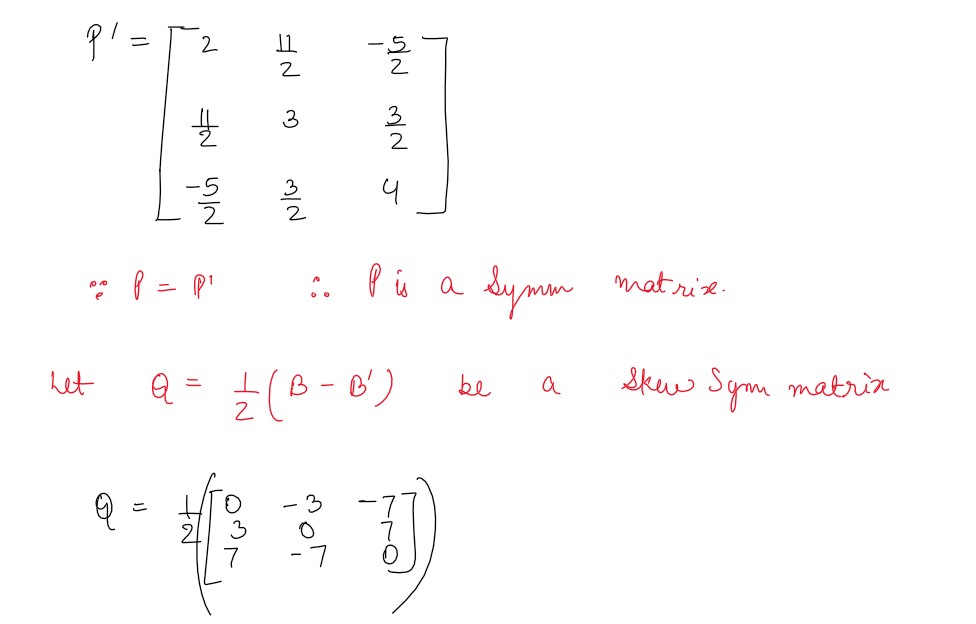 P' = [ 2 11/2 -5/2
11/2 3 3/2
-5/2 3/2 4 ]
∵ P = P' ∴ P is a Symm matrix.
Let Q = 1/2 ( B - B' ) be a Skew Sym matrix
Q = 1/2 ( [ 0 -3 -7
3 0 7
7 -7 0 ] )